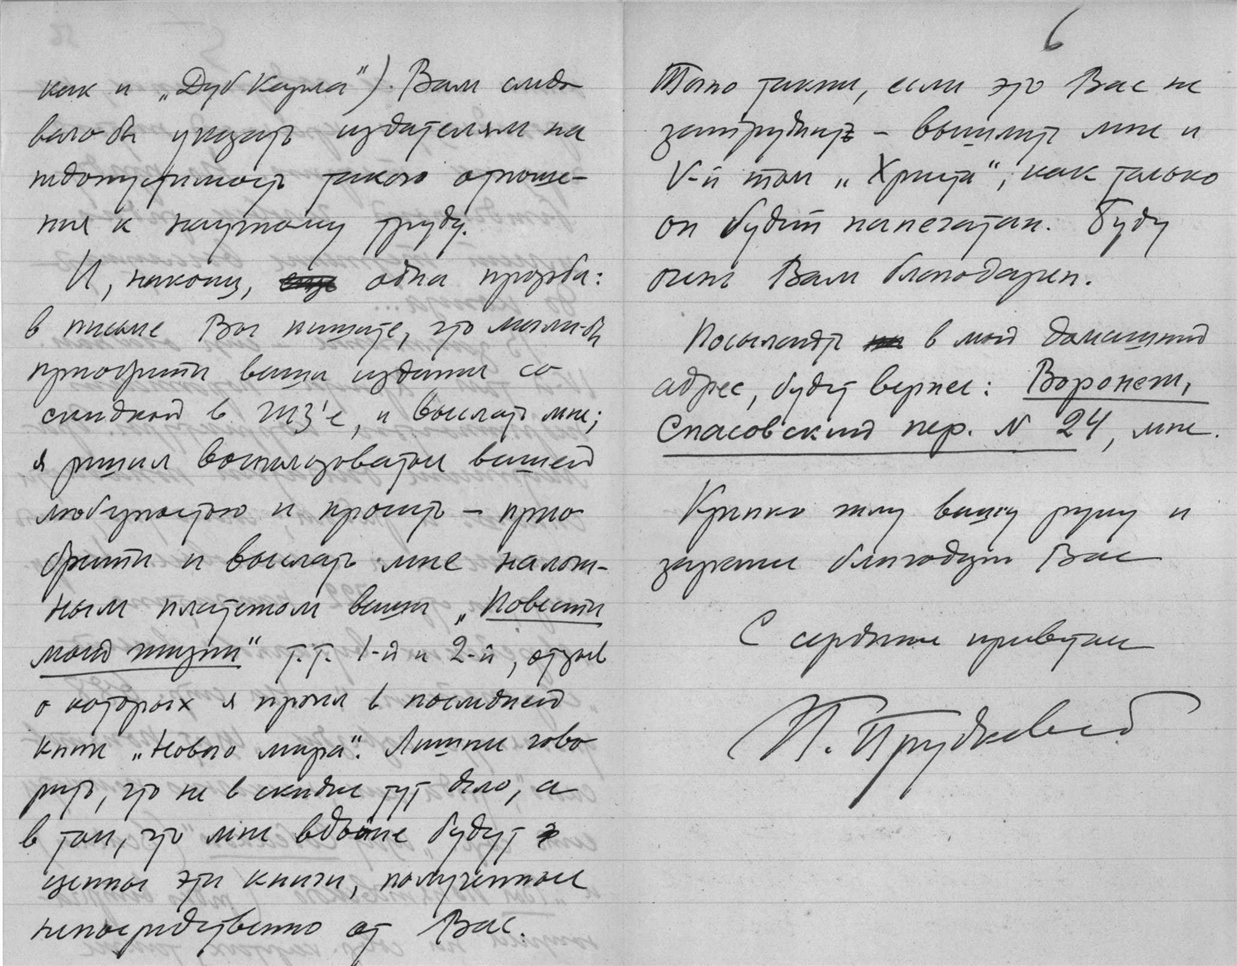 как и „Дуб Карла“). Вам следо
вало бы указать издателям на
недопустимость такого отноше-
ния к научному труду.
И, наконец, еще одна просьба:
в письме Вы пишете, что могли-бы
приобрести ваши издания со
скидкой в ГИЗ'е, и выслать мне;
я решил воспользоваться вашей
любезностью и просить – прио
брести и выслать мне налож-
ным платежом ваши „Повести
моей жизни“ т.т. 1-й и 2-й, отзыв
о которых я прочел в последней
книге „Нового мира“. Лишне гово
рить, что не в скидке тут дело, а
в том, что мне вдвойне будут
ценны эти книги, полученные
непосредственно от Вас.
6
Точно также, если это Вас не
затруднит – вышлите мне и
V-й том „Христа“, как только
он будет напечатан. Буду
очень Вам благодарен.
Посылайте в мой домашний
адрес, будет вернее: Воронеж,
Спасовский пер. № 24, мне.
Крепко жму вашу руку и
заранее благодарю Вас
С сердечным приветом
П. Прудковский